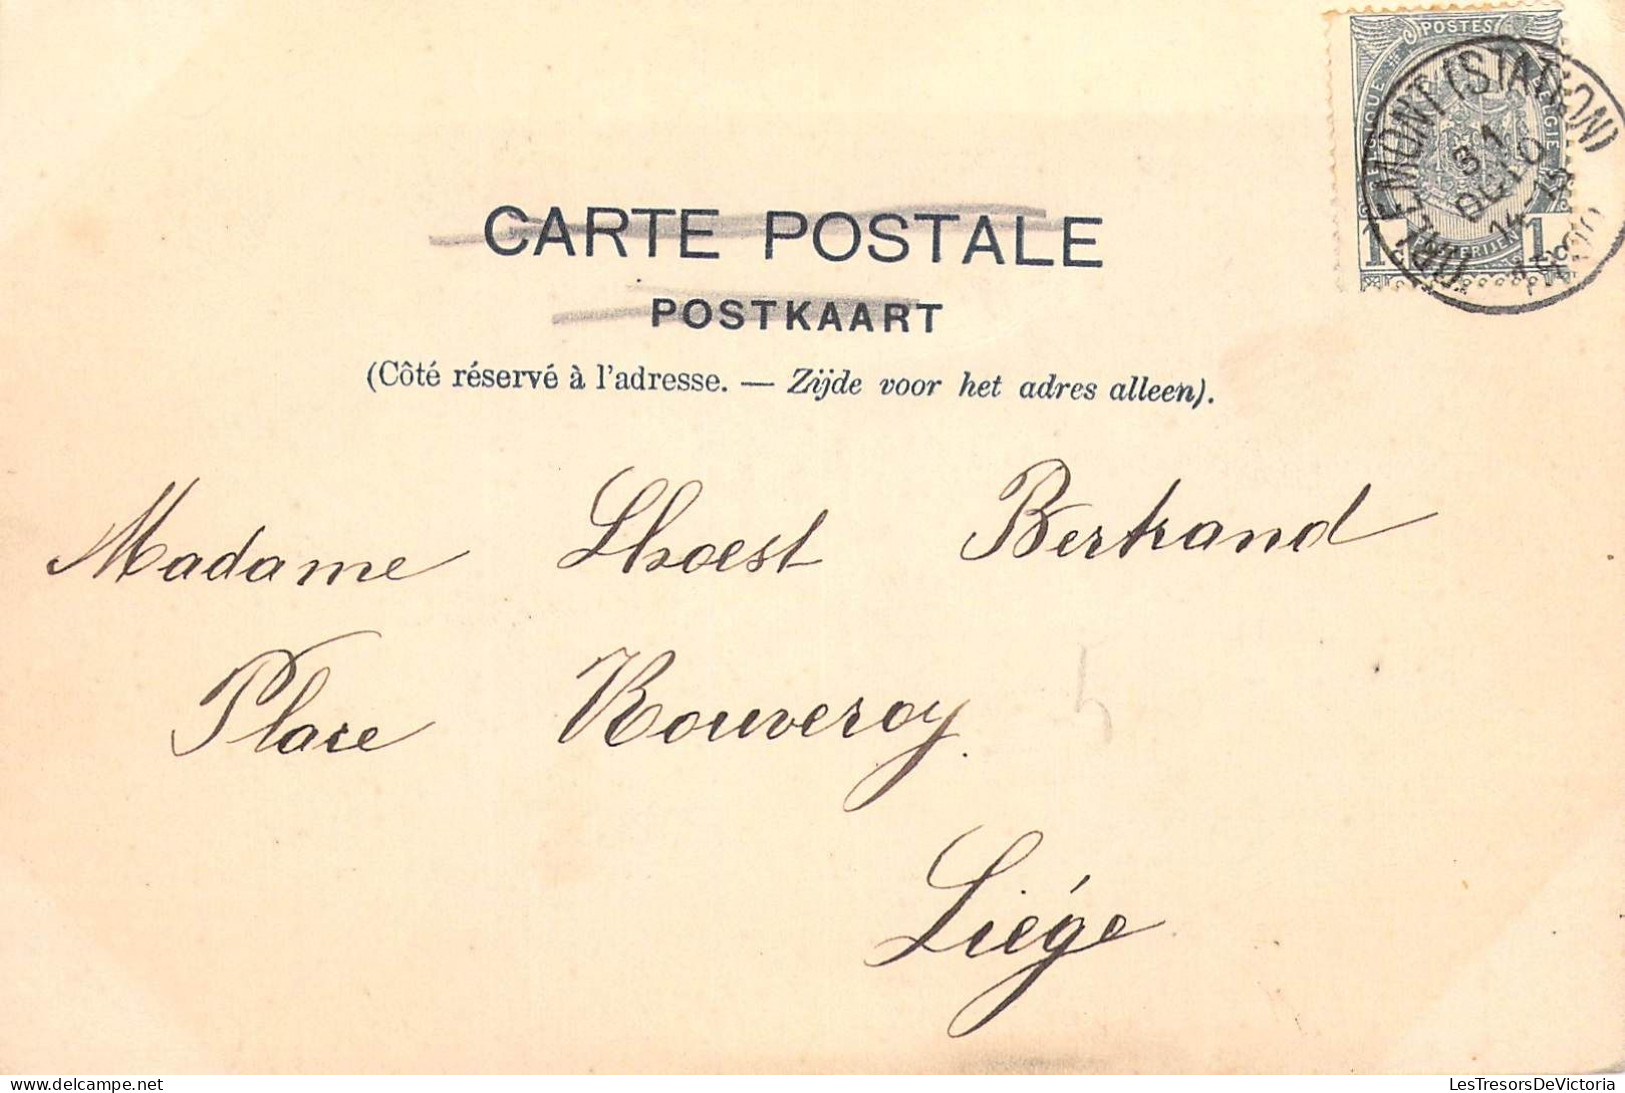 POSTES
BELGIQUE BELGIE
1 1
TIRLEMONT (STATION)
31
OCTO
14
CARTE POSTALE
POSTKAART
(Côté réservé à l'adresse. — Zijde voor het adres alleen).
Madame Lhoest Bertrand
Place Rouveroy
Liége
LesTresorsDeVictoria